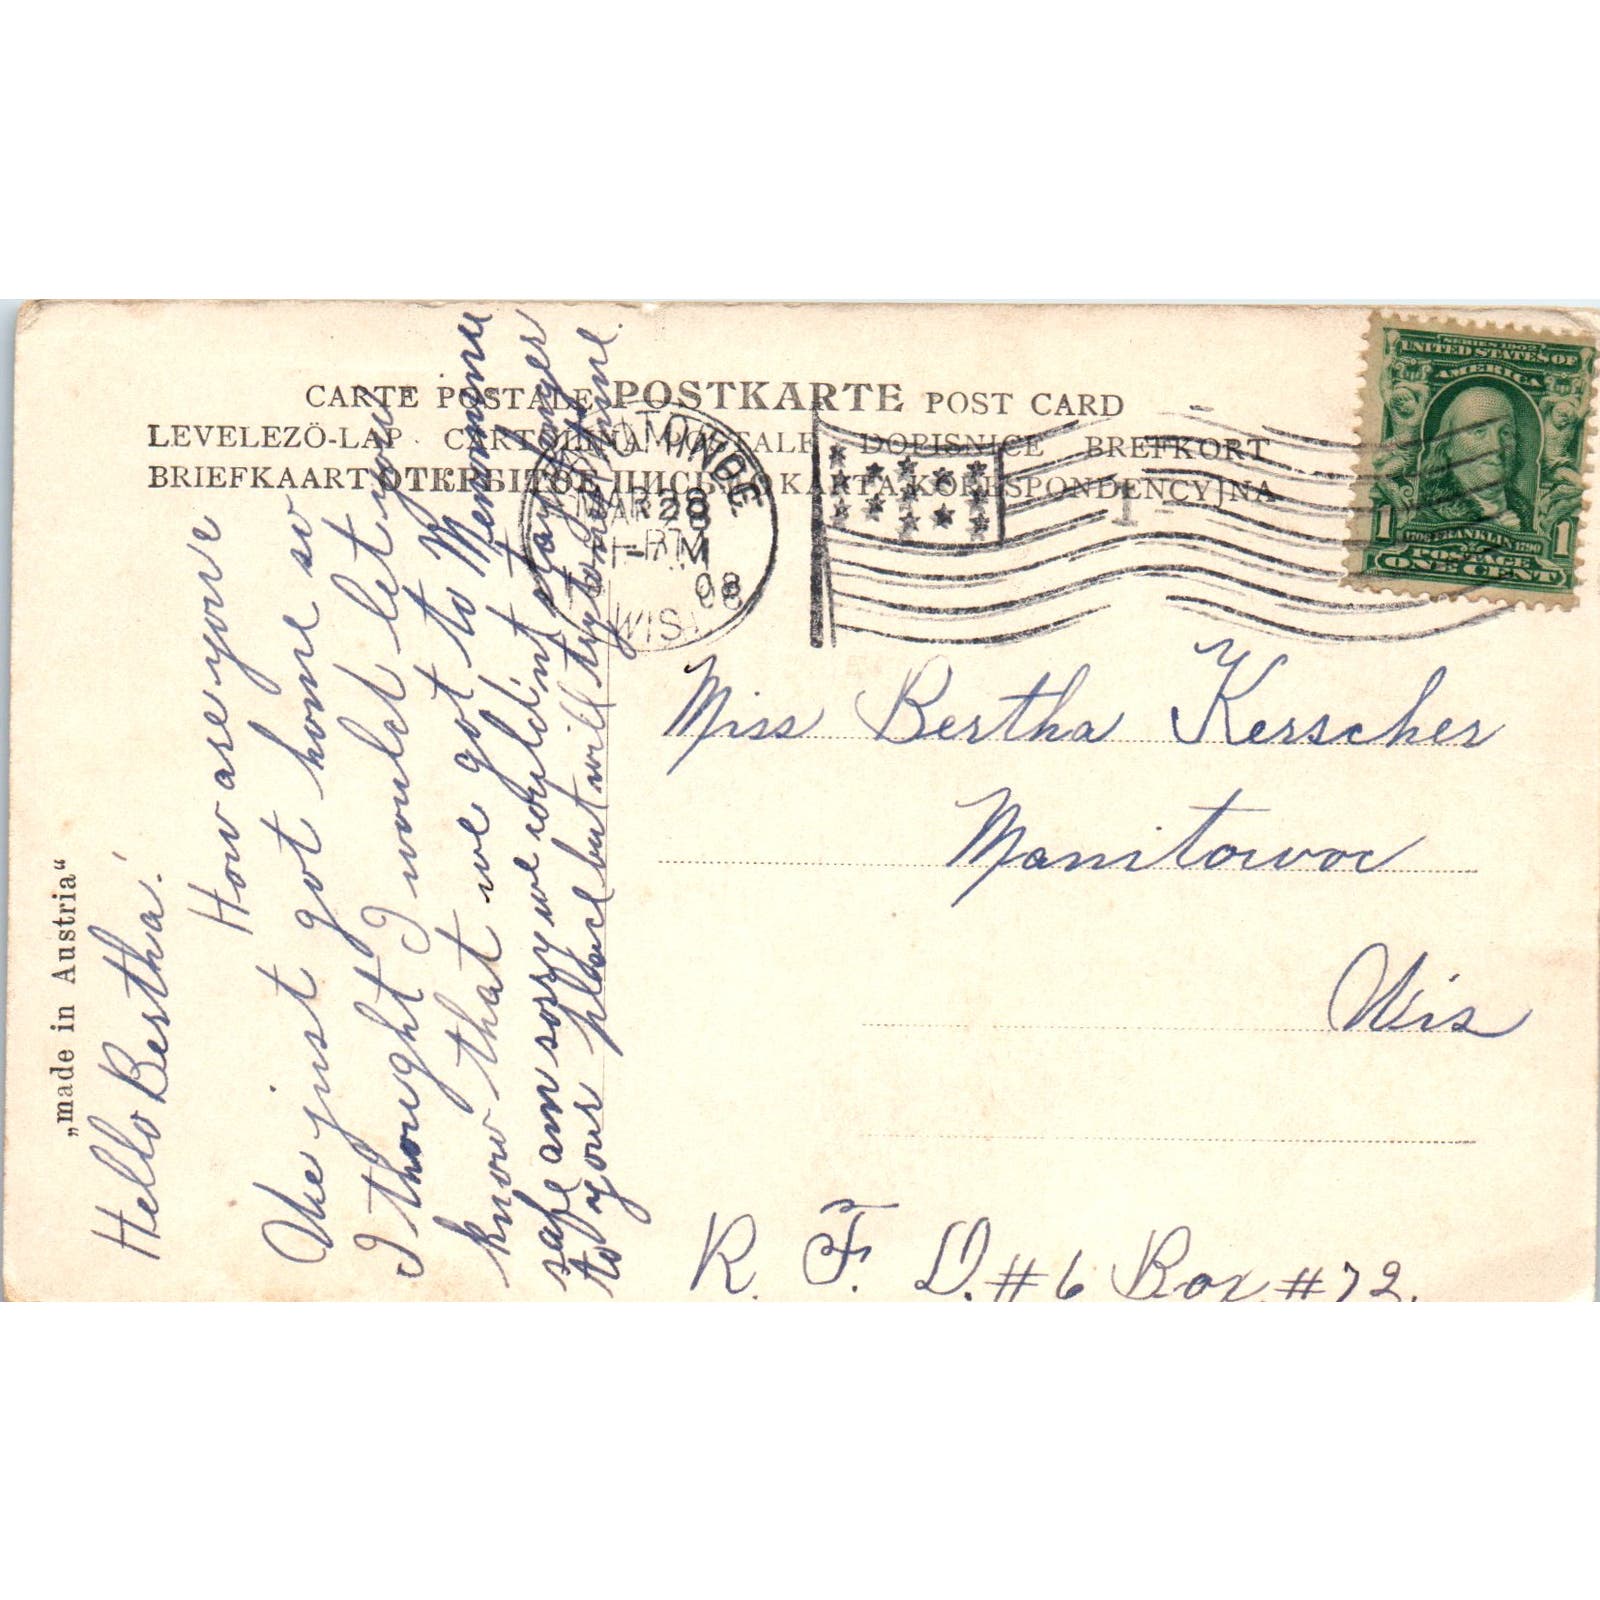 CARTE POSTALE POSTKARTE POST CARD
LEVELEZŐ-LAP CARTOLINA POSTALE DOPISNICE BREFKORT
BRIEFKAART ОТКРЫТОЕ ПИСЬМО KARTA KORESPONDENCYJNA
"made in Austria"
Hello Bertha!
How are you
We just got home so
I thought I would let you
know that we got to Menomonie
safe am sorry we couldn't stay longer
to your place but will try to next time.
MAR 28
08
WIS.
1
SERIES 1902
UNITED STATES OF
AMERICA
1 1
1706 FRANKLIN 1790
POSTAGE
ONE CENT
Miss Bertha Kerscher
Manitowoc
Wis
R. F. D. #6 Box #72.